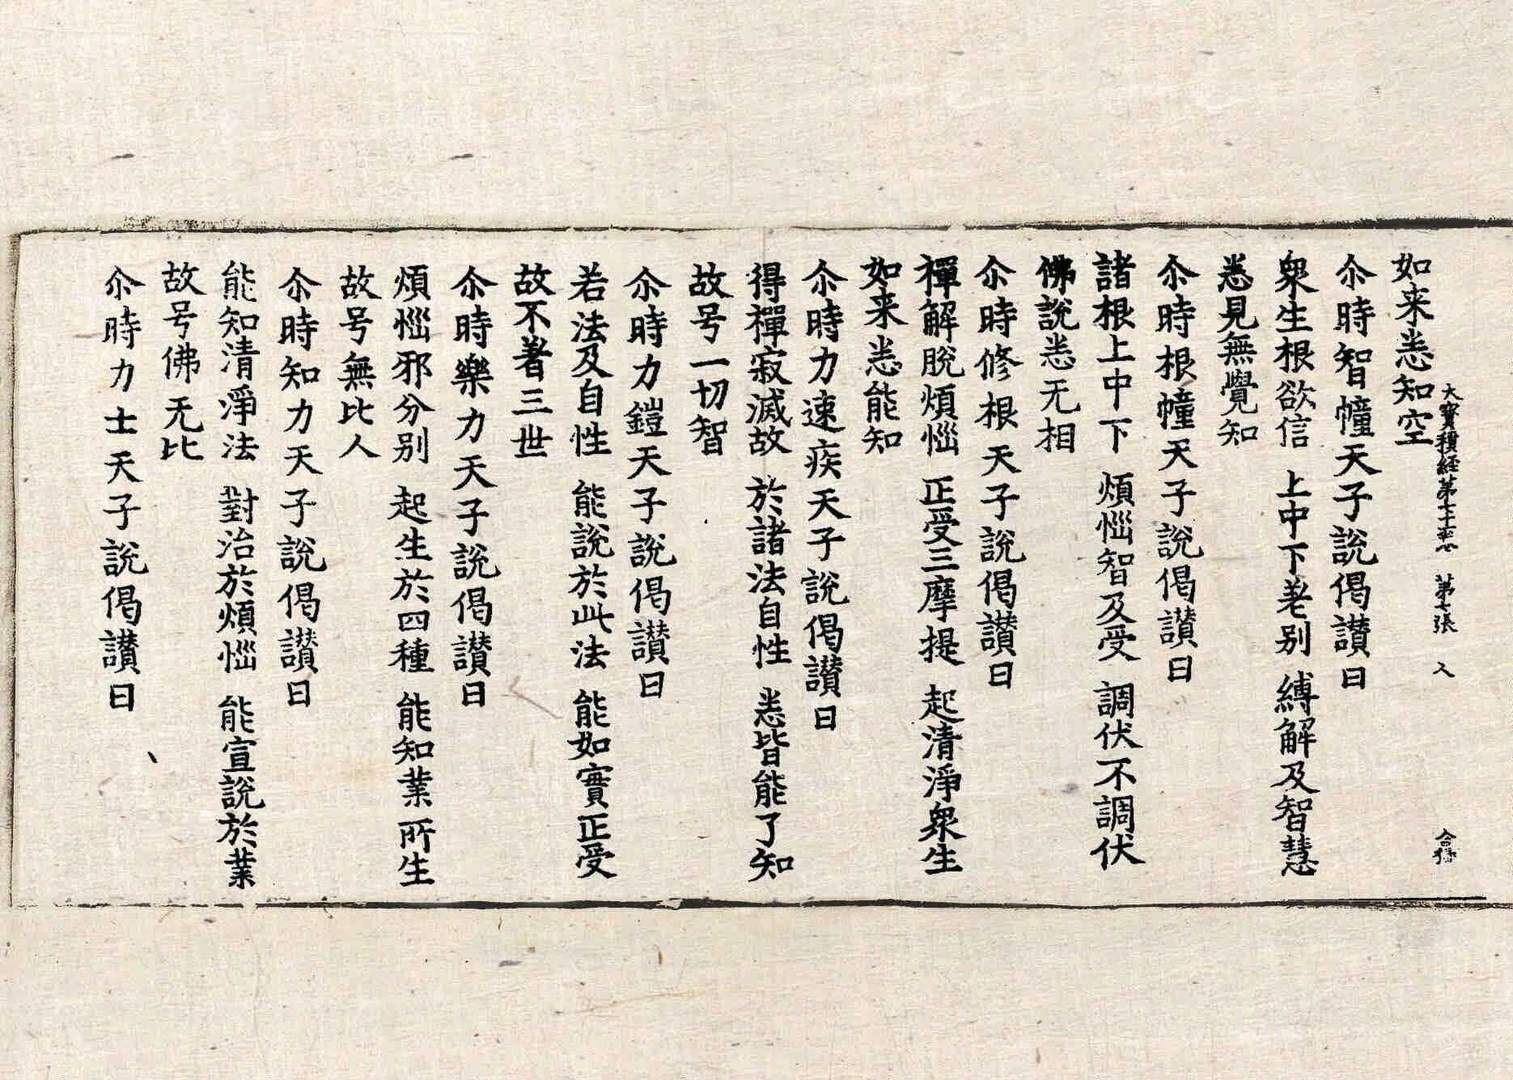 大寶積經第七十一卷 第七張 人
如来悉知空
尒時智幢天子說偈讃曰
衆生根欲信 上中下差别 縛解及智慧
悉見無覺知
尒時根幢天子說偈讃曰
諸根上中下 煩惱智及受 調伏不調伏
佛說悉无相
尒時修根天子說偈讃曰
禪解脫煩惱 正受三摩提 起清淨衆生
如来悉能知
尒時力速疾天子說偈讃曰
得禪寂滅故 於諸法自性 悉皆能了知
故号一切智
尒時力鎧天子說偈讃曰
若法及自性 能說於此法 能如實正受
故不著三世
尒時樂力天子說偈讃曰
煩惱邪分别 起生於四種 能知業所生
故号無比人
尒時知力天子說偈讃曰
能知清淨法 對治於煩惱 能宣說於業
故号佛无比
尒時力士天子說偈讃曰